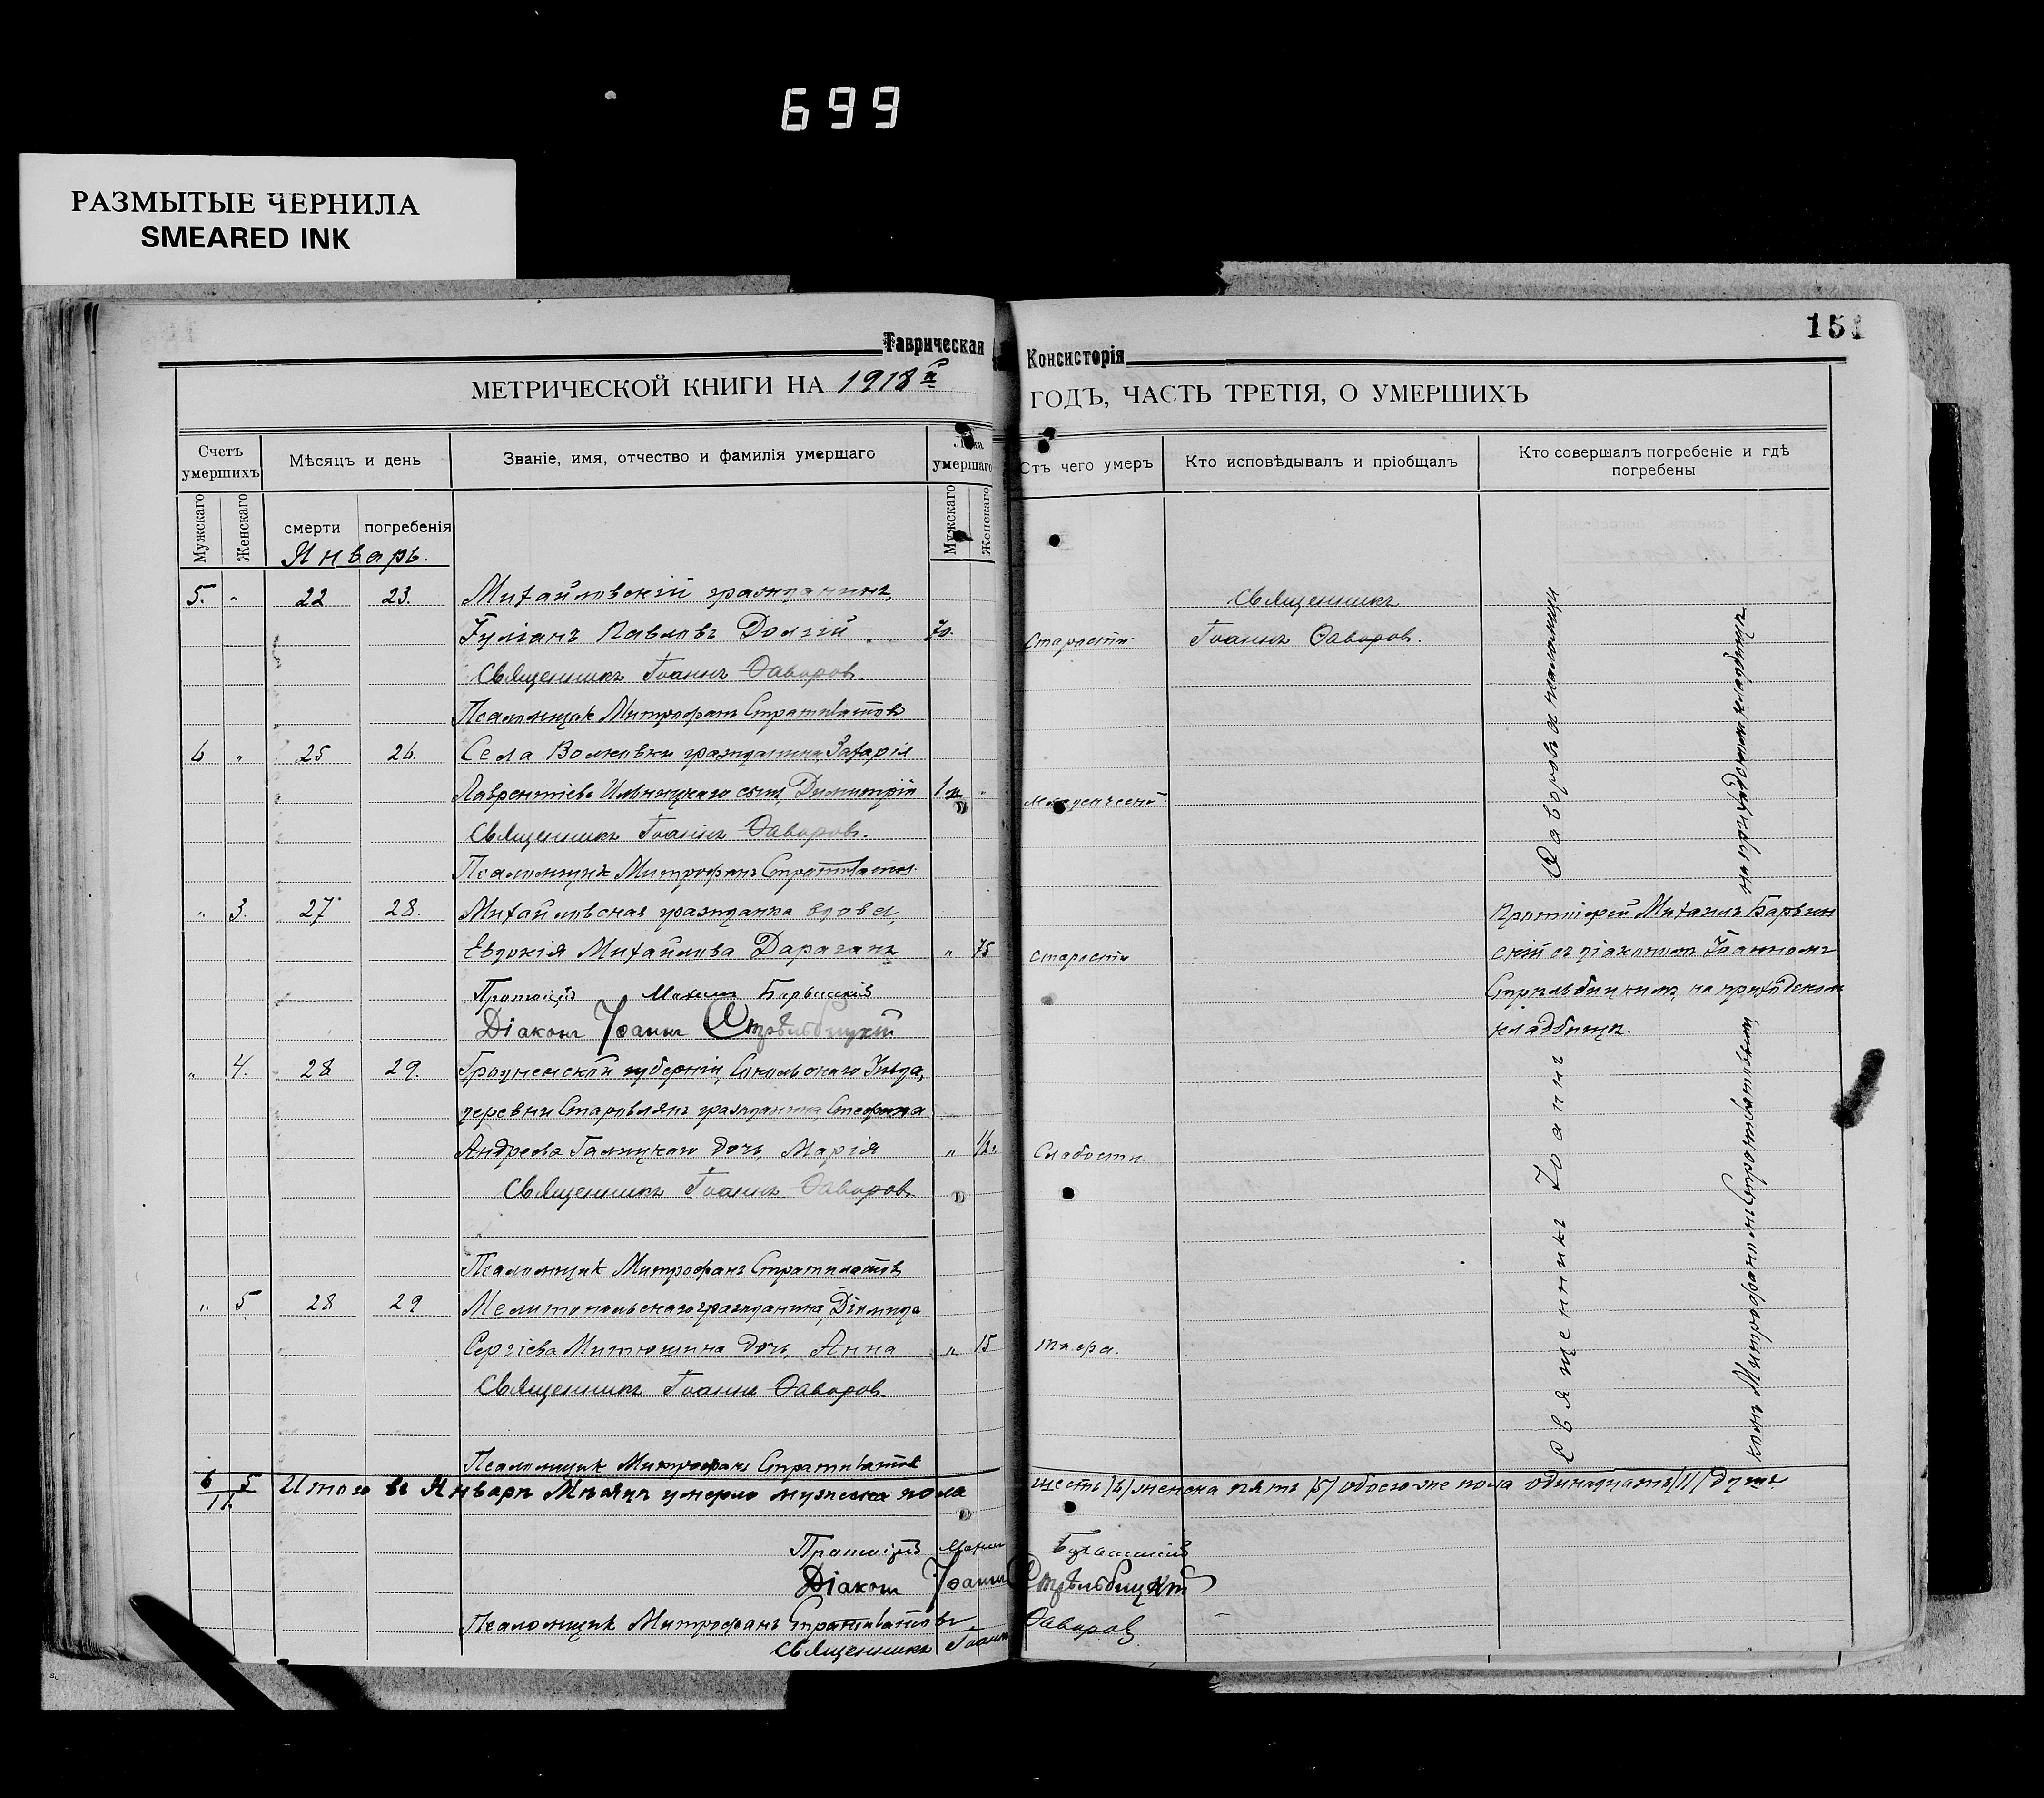 699
РАЗМЫТЫЕ ЧЕРНИЛА
SMEARED INK
151
Таврическая Консисторія
МЕТРИЧЕСКОЙ КНИГИ НА 1918 й ГОДЪ, ЧАСТЬ ТРЕТІЯ, О УМЕРШИХЪ
Счетъ умершихъ
Мѣсяцъ и день
Званіе, имя, отчество и фамилія умершаго
Лѣта умершаго
Отъ чего умеръ
Кто исповѣдывалъ и пріобщалъ
Кто совершалъ погребеніе и гдѣ погребены
Мужскаго
Женскаго
смерти
погребенія
Мужскаго
Женскаго
Январь.
5. " 22 23. Михайловскій гражданинъ Священникъ
Іуліанъ Павловъ Долгій 70. Старости Іоаннъ Ѳаворовъ.
Священникъ Іоаннъ Ѳаворовъ
Псаломщикъ Митрофанъ Стратилатовъ
6 " 25 26. Села Волковки гражданина Захарія
Лаврентіева Ильницкаго сынъ, Димитрій "
Священникъ Іоаннъ Ѳаворовъ.
Псаломщикъ Митрофанъ Стратилатовъ
" 3. 27 28. Михайловская гражданка вдова, Протоіерей Михаилъ
Евдокія Михайлова Дараганъ " 75 старости скій съ діакономъ Іоанномъ
Протоіерей Михаилъ Стрельбицкимъ, на приходскомъ
Діаконъ Іоаннъ Стрѣльбицкій кладбищѣ.
" 4. 28 29. Гродненской губерніи, Сокольскаго Уѣзда,
деревни гражданина, Стефана
Андреева Галицкаго дочь, Марія " 1/2. Слабости
Священникъ Іоаннъ Ѳаворовъ
Псаломщикъ Митрофанъ Стратилатовъ
" 5 28 29 Мелитопольскаго гражданина, Діомида
Сергіева Митюшина дочь, Анна " 15
Священникъ Іоаннъ Ѳаворовъ
Псаломщикъ Митрофанъ Стратилатовъ
Священникъ Іоаннъ Ѳаворовъ и псаломщи
комъ Митрофаномъ Стратилатовымъ на приходскомъ кладбищѣ
6 5 Итого въ Январѣ Мѣсяцѣ умерло мужеска пола шесть /6/ женска пять /5/ обоего же пола одинадцать /11/ душъ
11
Протоіерей Михаилъ
Діаконъ Іоаннъ Стрѣльбицкій
Псаломщикъ Митрофанъ Стратилатовъ
Священникъ Іоаннъ Ѳаворовъ